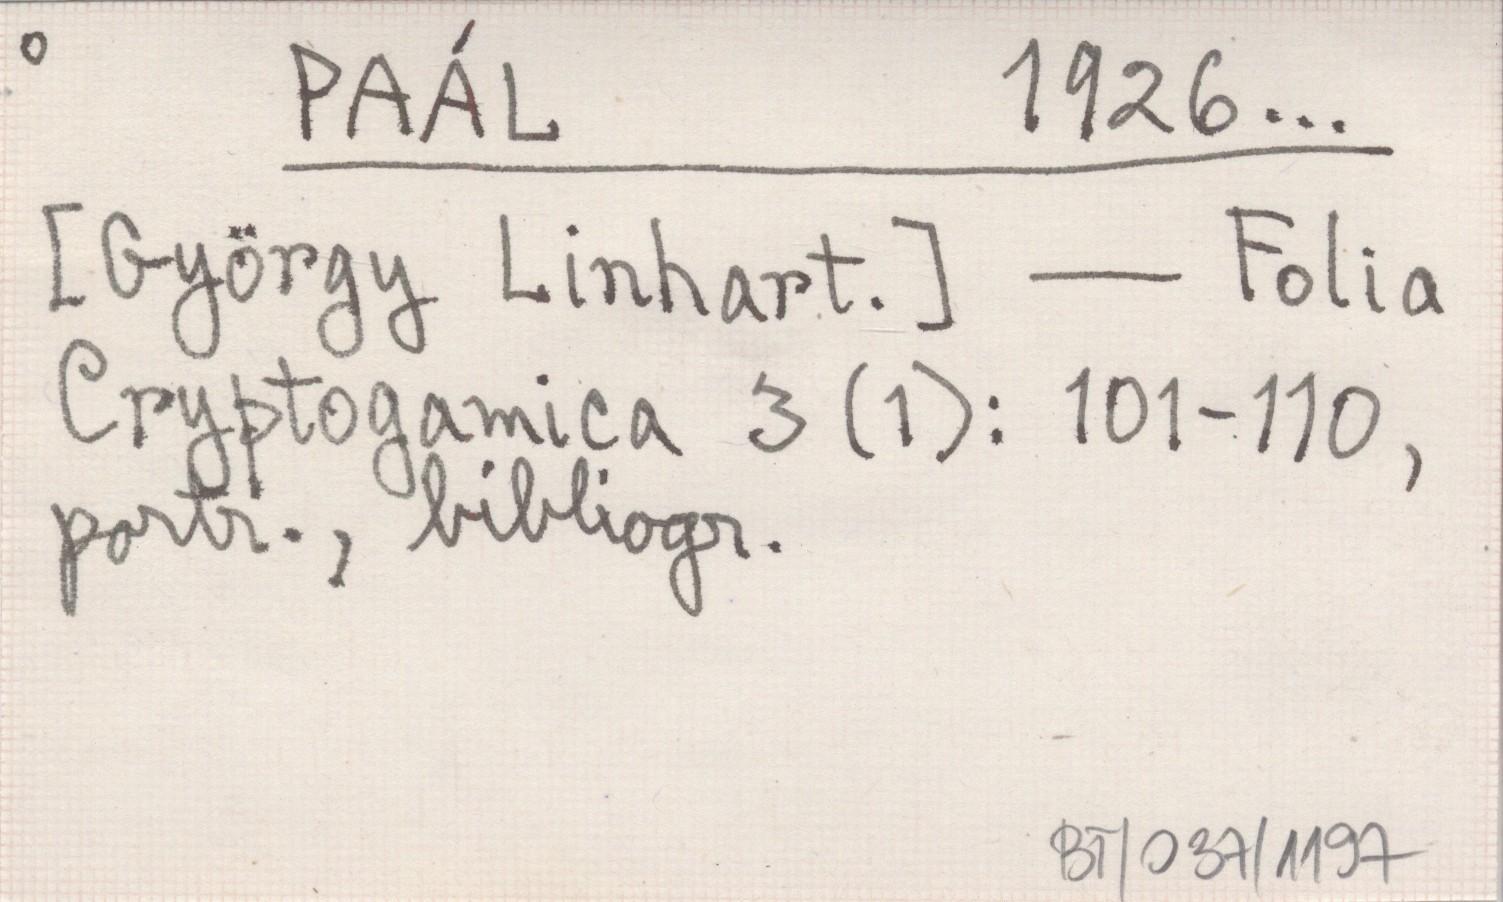 o
PAÁL 1926...
[György Linhart.] — Folia
Cryptogamica 3 (1): 101-110,
portr., bibliogr.
BT/037/1197